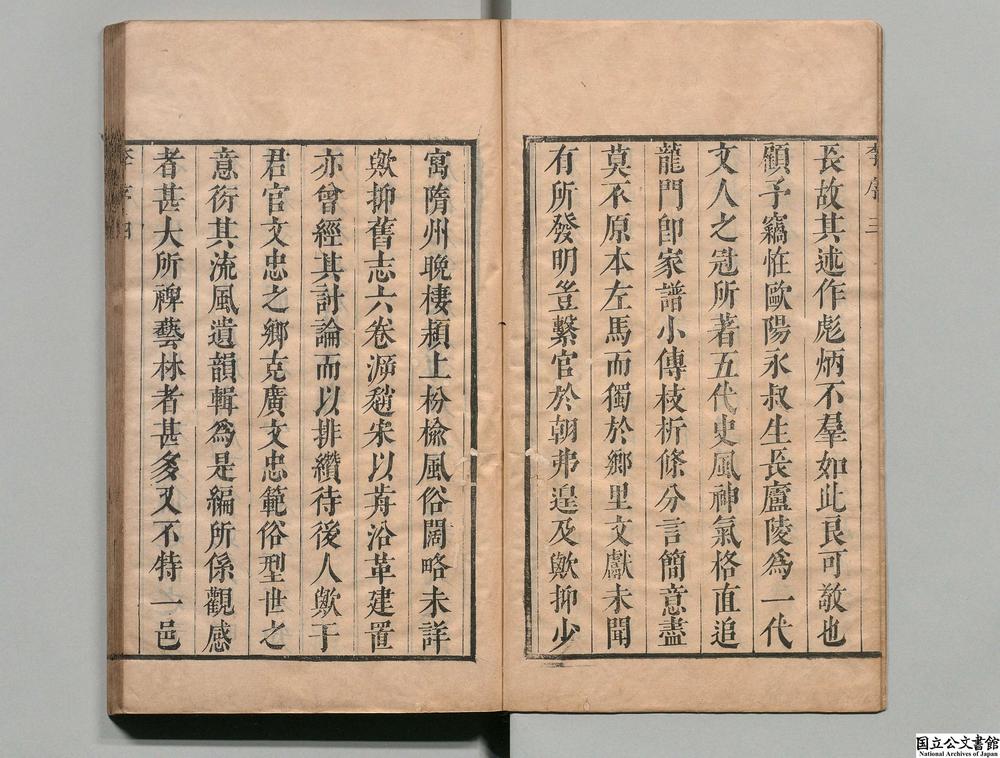 長故其述作彪炳不羣如此良可敬也
顧予竊恠歐陽永叔生長廬陵為一代
文人之冠所著五代史風神氣格直追
龍門卽家譜小傳枝析條分言簡意盡
莫不原本左馬而獨於鄉里文獻未聞
有所發明豈繫官於朝弗遑及歟抑少
寓隋州晚棲潁上枌榆風俗闊略未詳
歟抑舊志六卷溯趙宋以前沿革建置
亦曾經其討論而以排纘待後人歟于
君官文忠之鄉克廣文忠範俗型世之
意衍其流風遺韻輯為是編所係觀感
者甚大所裨藝林者甚多又不特一邑
李序 三
李序 四
国立公文書館
National Archives of Japan